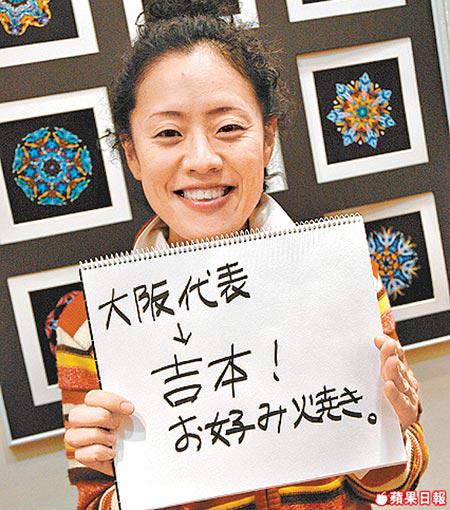 大阪代表
↓
吉本!
お好み焼き。
蘋果日報